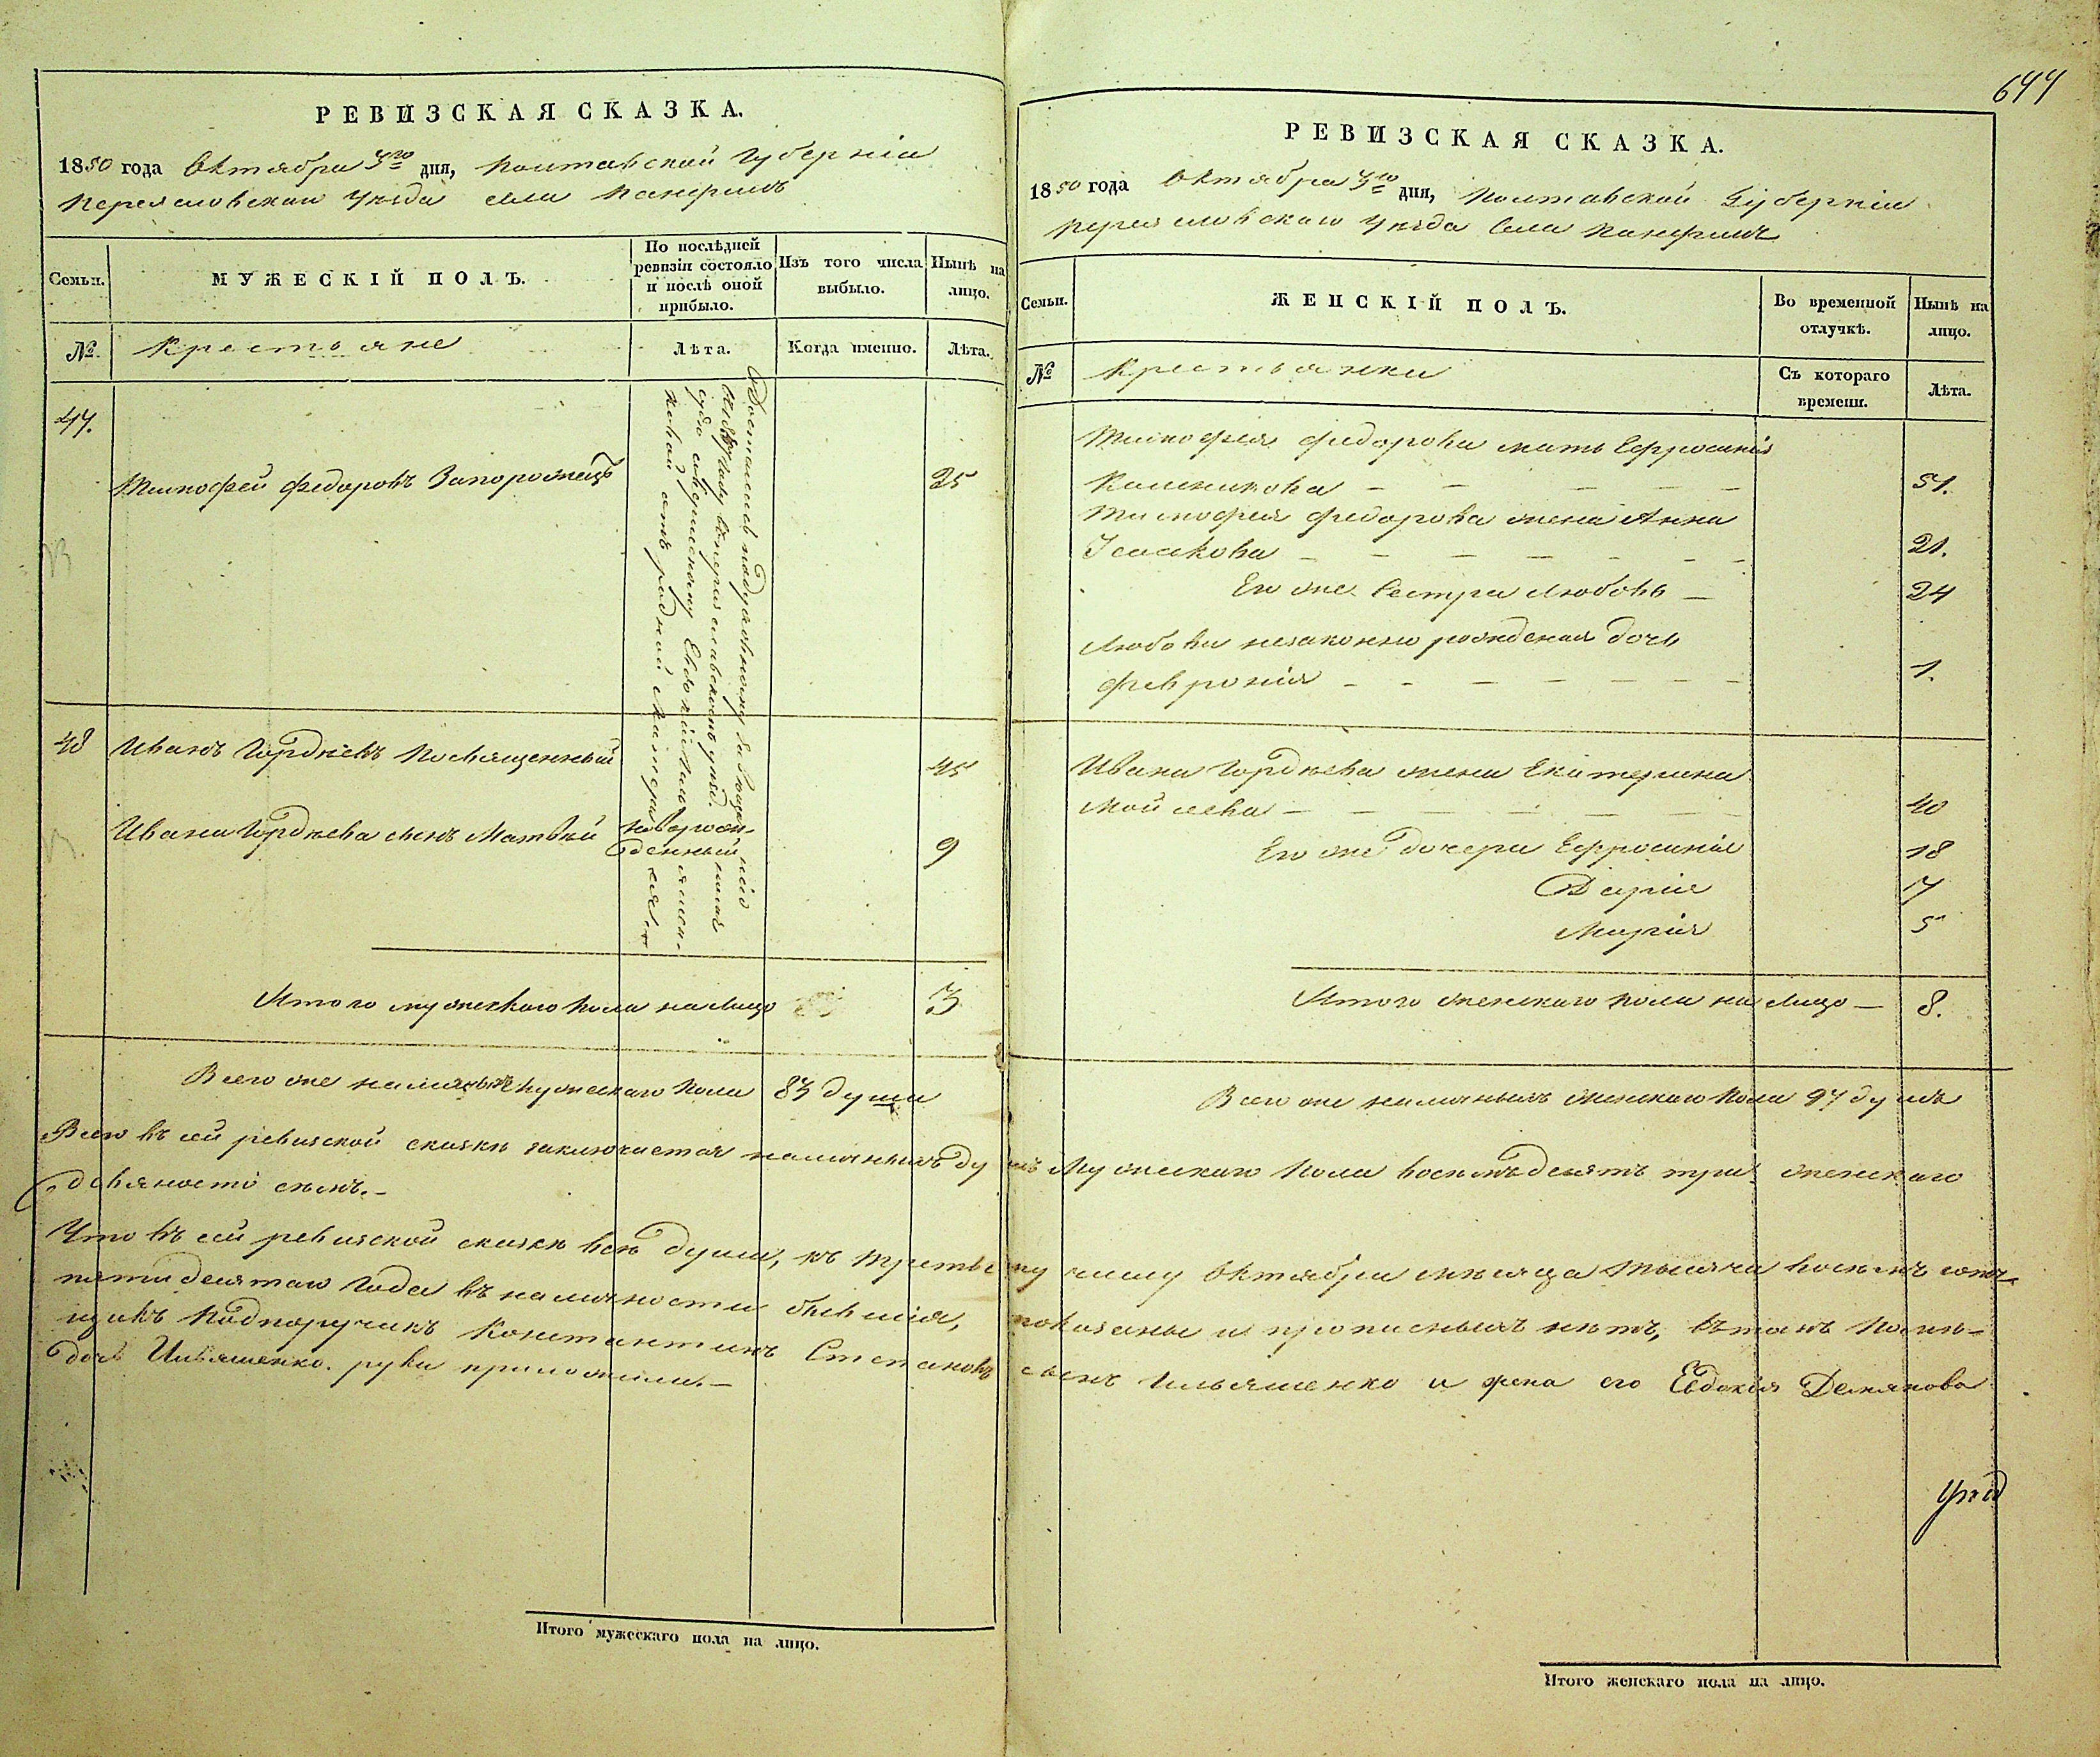 644
РЕВИЗСКАЯ СКАЗКА.
1850 года Октября 3го дня, Полтавской Губерніи
Переяславскаго Уѣзда села Панфилъ
Семьи.
МУЖЕСКІЙ ПОЛЪ.
По послѣдней ревизіи состояло и послѣ оной прибыло.
Изъ того числа выбыло.
Нынѣ на лицо.
№
Крестьяне
Лѣта.
Когда именно.
Лѣта.
47.
Тимофей Федоровъ Запорожецъ
25
Доставшіеся по духовному
48
Иванъ Гордѣевъ Посвященный
45
Ивана Гордѣева сынъ Матвѣй
новорож-
денный
9
Итого мужескаго пола на лицо
3
Всего же наличныхъ мужескаго пола 83 души
РЕВИЗСКАЯ СКАЗКА.
1850 года Октября 3го дня, Полтавской Губерніи
Переяславскаго Уѣзда села Панфилъ
Семьи.
ЖЕНСКІЙ ПОЛЪ.
Во временной отлучкѣ.
Нынѣ на лицо.
№
Крестьянки
Съ котораго времени.
Лѣта.
Тимофея Федорова мать Ефросинія
51.
Тимофея Федорова жена Анна
Исаакова
21.
Его же сестра Любовь
24
Любови незаконно рожденая дочь
Февронія
1.
Ивана Гордѣева жена Екатерина
Мойсеева
40
Его же дочери Ефросинія
18
Дарія
17
Марія
5
Итого женскаго пола на лицо
8.
Всего же наличныхъ женскаго пола 97 душъ
Всего въ сей ревизской сказкѣ заключается наличныхъ душъ Мужескаго пола восемьдесятъ три женскаго
девяносто семь.
Что въ сей ревизской сказкѣ всѣ души, къ третьему числу Октября мѣсяца тысяча восемь сотъ
пятидесятаго года въ наличности бывшія, показаны и прописныхъ нѣтъ, въ томъ помѣ-
щикъ Подпоручикъ Константинъ Степановъ сынъ Ильяшенко и жена его Евдокія Демянова
дочь Ильяшенко. руки приложили.
Уѣзд
Итого мужескаго пола на лицо.
Итого женскаго пола на лицо.